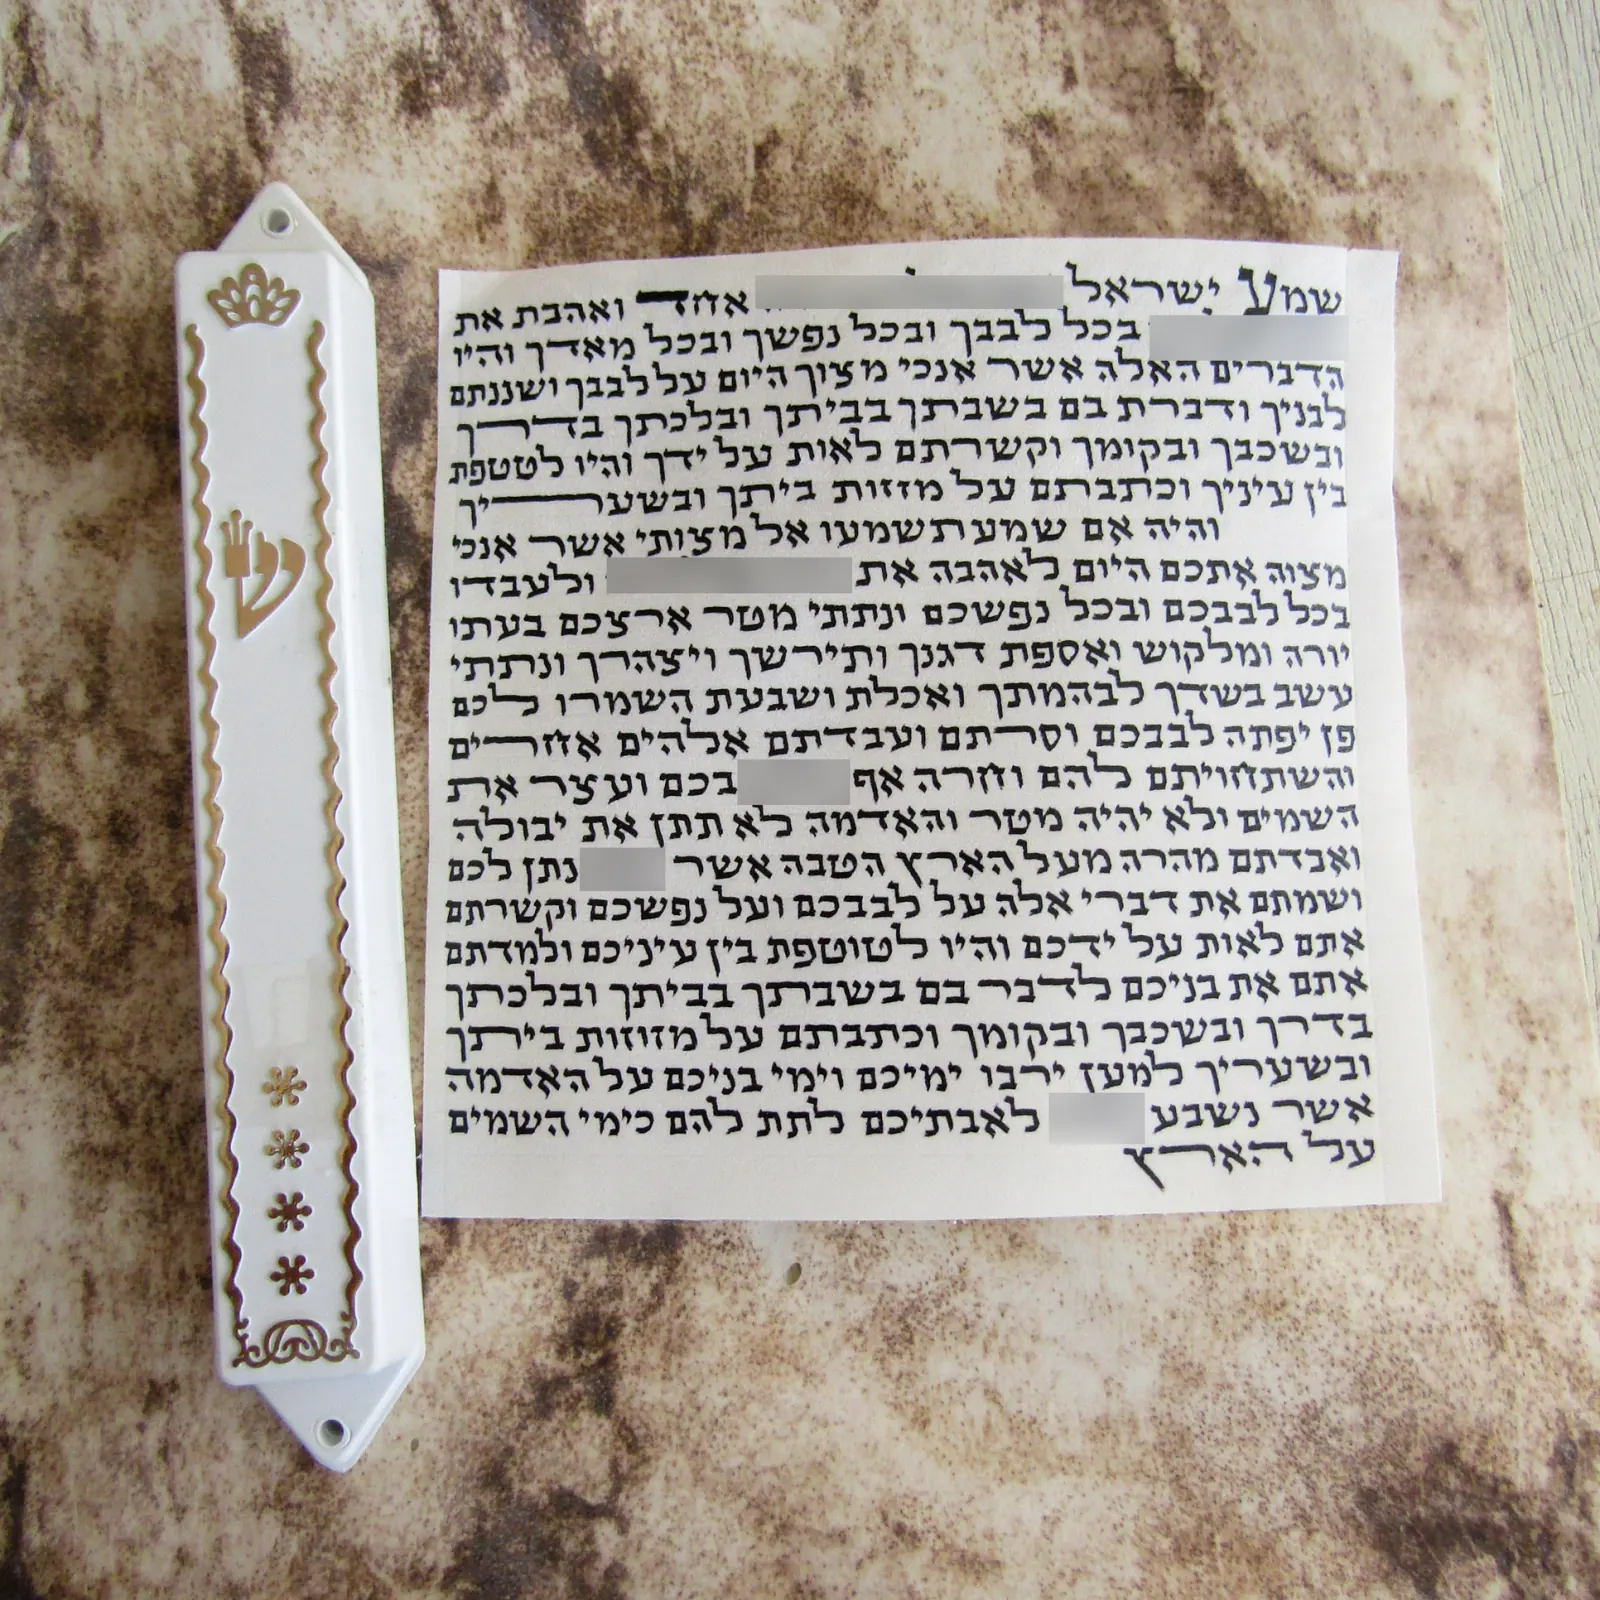 ש
שמע ישראל אחד ואהבת את
בכל לבבך ובכל נפשך ובכל מאדך והיו
הדברים האלה אשר אנכי מצוך היום על לבבך ושננתם
לבניך ודברת בם בשבתך בביתך ובלכתך בדרך
ובשכבך ובקומך וקשרתם לאות על ידך והיו לטטפת
בין עיניך וכתבתם על מזזות ביתך ובשעריך
והיה אם שמע תשמעו אל מצותי אשר אנכי
מצוה אתכם היום לאהבה את ולעבדו
בכל לבבכם ובכל נפשכם ונתתי מטר ארצכם בעתו
יורה ומלקוש ואספת דגנך ותירשך ויצהרך ונתתי
עשב בשדך לבהמתך ואכלת ושבעת השמרו לכם
פן יפתה לבבכם וסרתם ועבדתם אלהים אחרים
והשתחויתם להם וחרה אף בכם ועצר את
השמים ולא יהיה מטר והאדמה לא תתן את יבולה
ואבדתם מהרה מעל הארץ הטבה אשר נתן לכם
ושמתם את דברי אלה על לבבכם ועל נפשכם וקשרתם
אתם לאות על ידכם והיו לטוטפת בין עיניכם ולמדתם
אתם את בניכם לדבר בם בשבתך בביתך ובלכתך
בדרך ובשכבך ובקומך וכתבתם על מזוזות ביתך
ובשעריך למען ירבו ימיכם וימי בניכם על האדמה
אשר נשבע לאבתיכם לתת להם כימי השמים
על הארץ